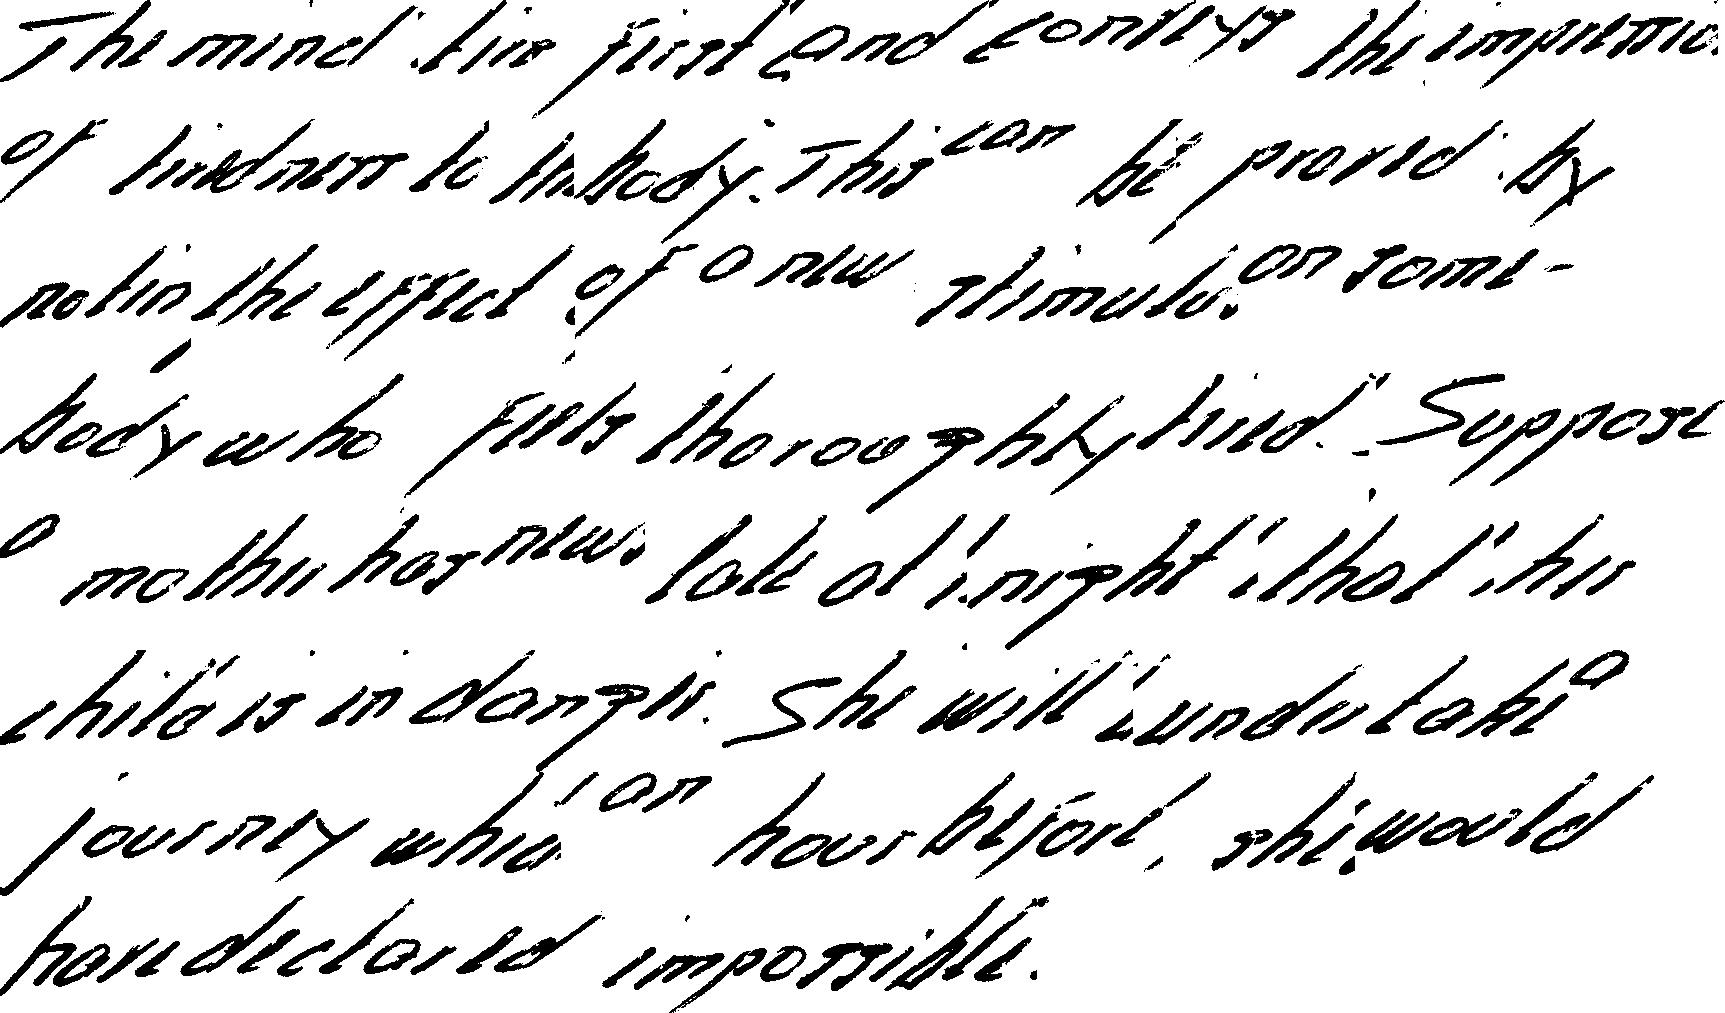 The mind tire first and conveys the impression
of tiredness to the body. This can be proved by
notin the effect of a new stimulus on some-
body who feels thoroughly tired. Suppose
a mother has news late at night that her
child is in danger. She will undertake a
journey which an hour before, she would
have declared impossible.